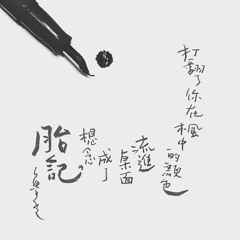 打翻了你在楓中
的顏色
流進
桌面
成了
想念的
胎記